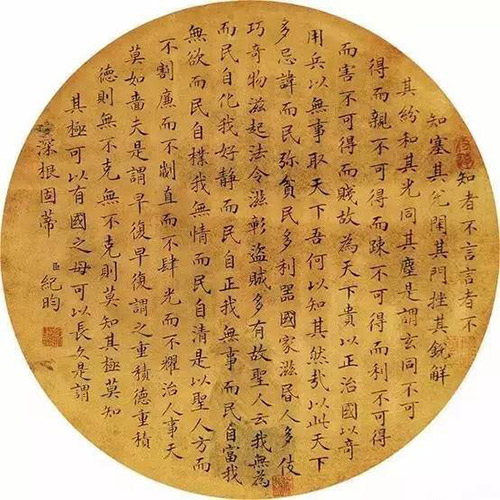 知者不言言者不
知塞其兌閉其門挫其銳解
其紛和其光同其塵是謂玄同不可
得而親不可得而踈不可得而利不可得
而害不可得而賤故為天下貴以正治國以奇
用兵以無事取天下吾何以知其然哉以此天下
多忌諱而民弥貧民多利器國家滋昬人多伎
巧奇物滋起法令滋彰盜賊多有故聖人云我無為
而民自化我好靜而民自正我無事而民自富我
無欲而民自樸我無情而民自清是以聖人方而
不割廉而不劌直而不肆光而不耀治人事天
莫如嗇夫是謂早復早復謂之重積德重積
德則無不克無不克則莫知其極莫知
其極可以有國之母可以長久是謂
深根固蒂
臣紀昀